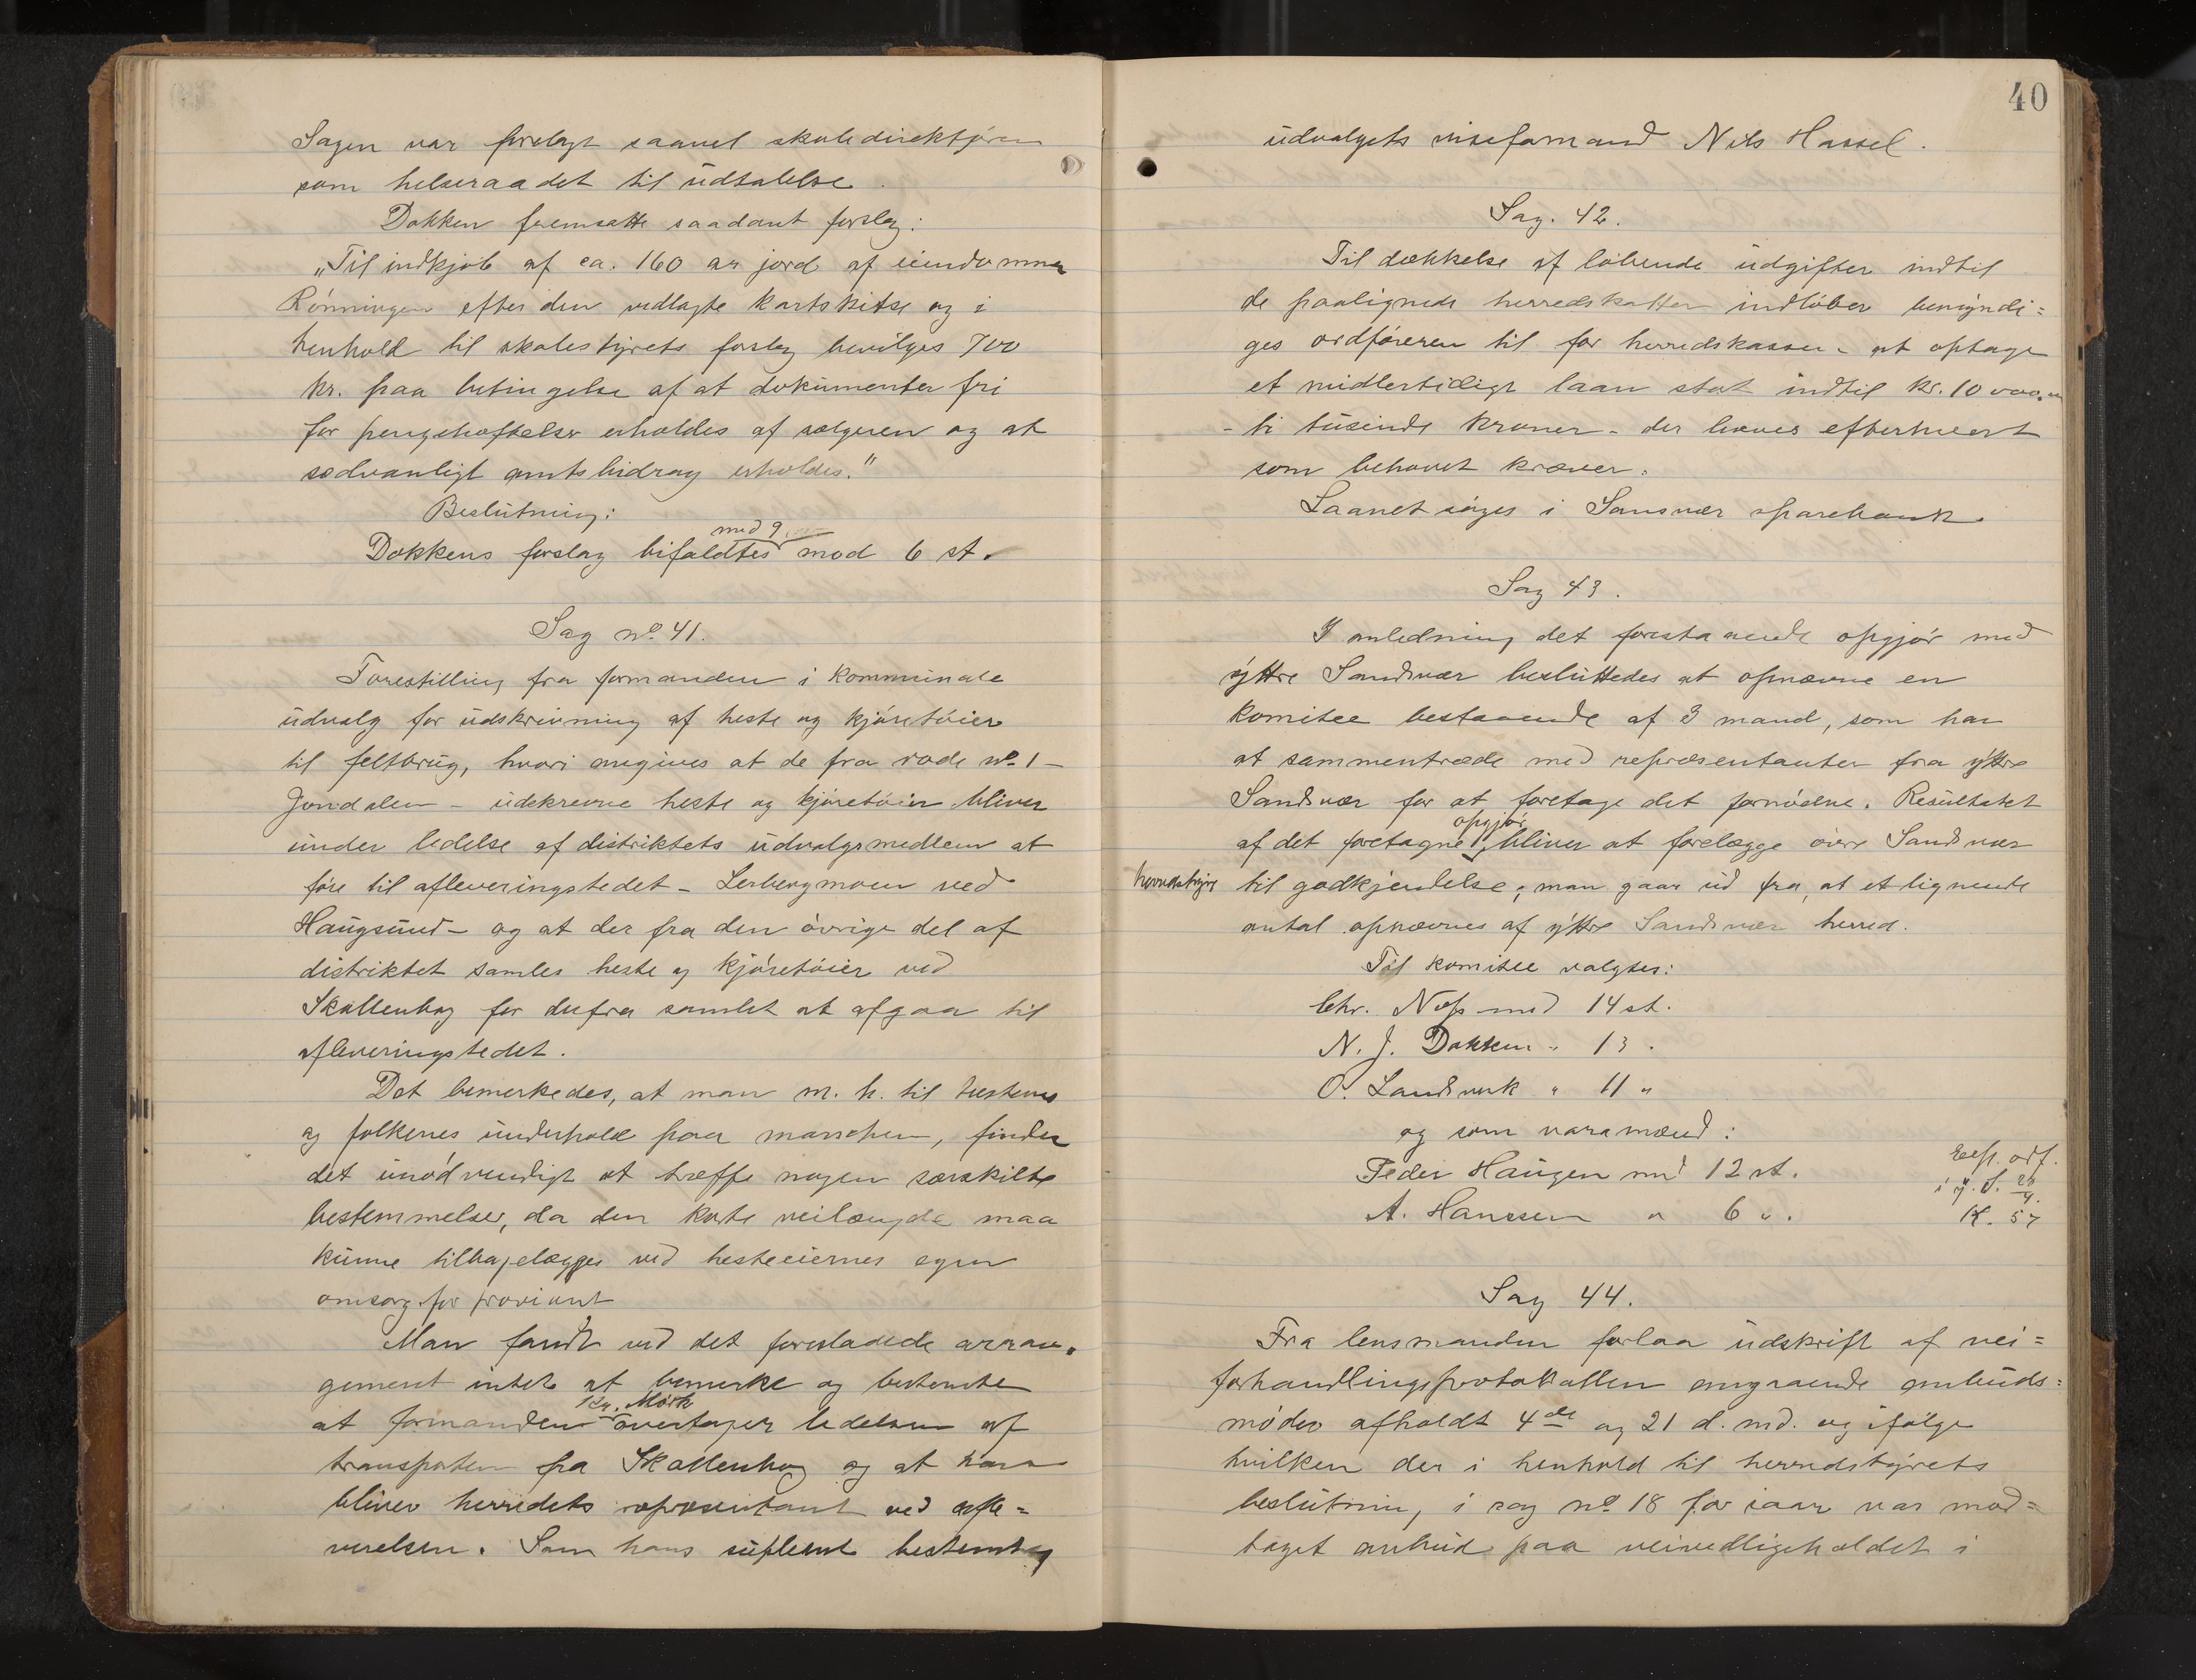 Sagen var forelagt saavel skoledirektøren
som helseraadet til udtalelse.
Dokken fremsatte saadant forslag:
„Til indkjøb af ca. 160 ar jord af eiendommen
Rønningen efter den vedlagte kartskitse og i
henhold til skolestyrets forslag bevilges 700
kr. paa betingelse af at dokumenter fri
for pengeheftelser erholdes af sælgeren og at
sedvanligt amtsbidrag erholdes."
Beslutning:
med 9
Dokkens forslag bifaldtes mod 6 st.
Sag no. 41.
Forestilling fra formanden i kommunale
udvalg for udskrivning af heste og kjøretøier
til feltbrug, hvori angives at de fra rode no. 1 –
Jondalen – udskrevne heste og kjøretøier bliver
under ledelse af distriktets udvalgsmedlem at
føre til afleveringstedet – Lerbergmoen ved
Haugsund – og at der fra den øvrige del af
distriktet samles heste og kjøretøier ved
Skollenborg for derfra samlet at afgaa til
afleveringstedet.
Det bemerkedes, at man m. h. til hestenes
og folkenes underhold paa marschen, finder
det unødvendigt at træffe nogen særskilte
bestemmelser, da den korte veilængde maa
kunne tilbagelægges ved hesteeiernes egen
omsorg for proviant
Man fandt ved det foreslaaede arran-
gement intet at bemerke og bestemte
Kr. Mørk
at formanden overtager ledelsen af
transporten fra Skollenborg og at han
bliver herredets repræsentant ved afle=
verelsen. Som hans suplent bestemtes
40
udvalgets viseformand Nils Hassel.
Sag. 42.
Til dækkelse af løbende udgifter indtil
de paalignede herredskatter indløber bemyndi=
ges ordføreren til for herredskassen at optage
et midlertidigt laan stort indtil kr. 10 000.00
– ti tusinde kroner – der hæves efterhvert
som behovet kræver.
Laanet søges i Sansvær sparebank.
Sag 43.
I anledning det forestaaende opgjør med
ytre Sandsvær besluttedes at opnævne en
komitee bestaaende af 3 mand, som har
at sammentræde med repræsentanter fra ytre
Sandsvær for at foretage det fornødne. Resultatet
opgjør
af det foretagne bliver at forelægge øvre Sandsvær
herredstyre til godkjendelse; man gaar ud fra, at et lignende
antal opnævnes af ytre Sandsvær herred.
Til komitee valgtes:
Chr. Næss med 14 st.
N. J. Dokken " 13 .
O. Landsverk " 11 "
og som varamænd:
Peder Haugen med 12 st.
A. Hanssen " 6 ".
Exp. ordf.
i y. S. 28/4.
K. 57
Sag 44.
Fra lensmanden forlaa udskrift af vei=
forhandlingsprotokollen angaaende anbuds=
møder afholdt 4de og 21 d. md. og ifølge
hvilken der i henhold til herredstyrets
beslutnin, i sag no. 18 for iaar var mod=
taget anbud paa veivedligeholdet i